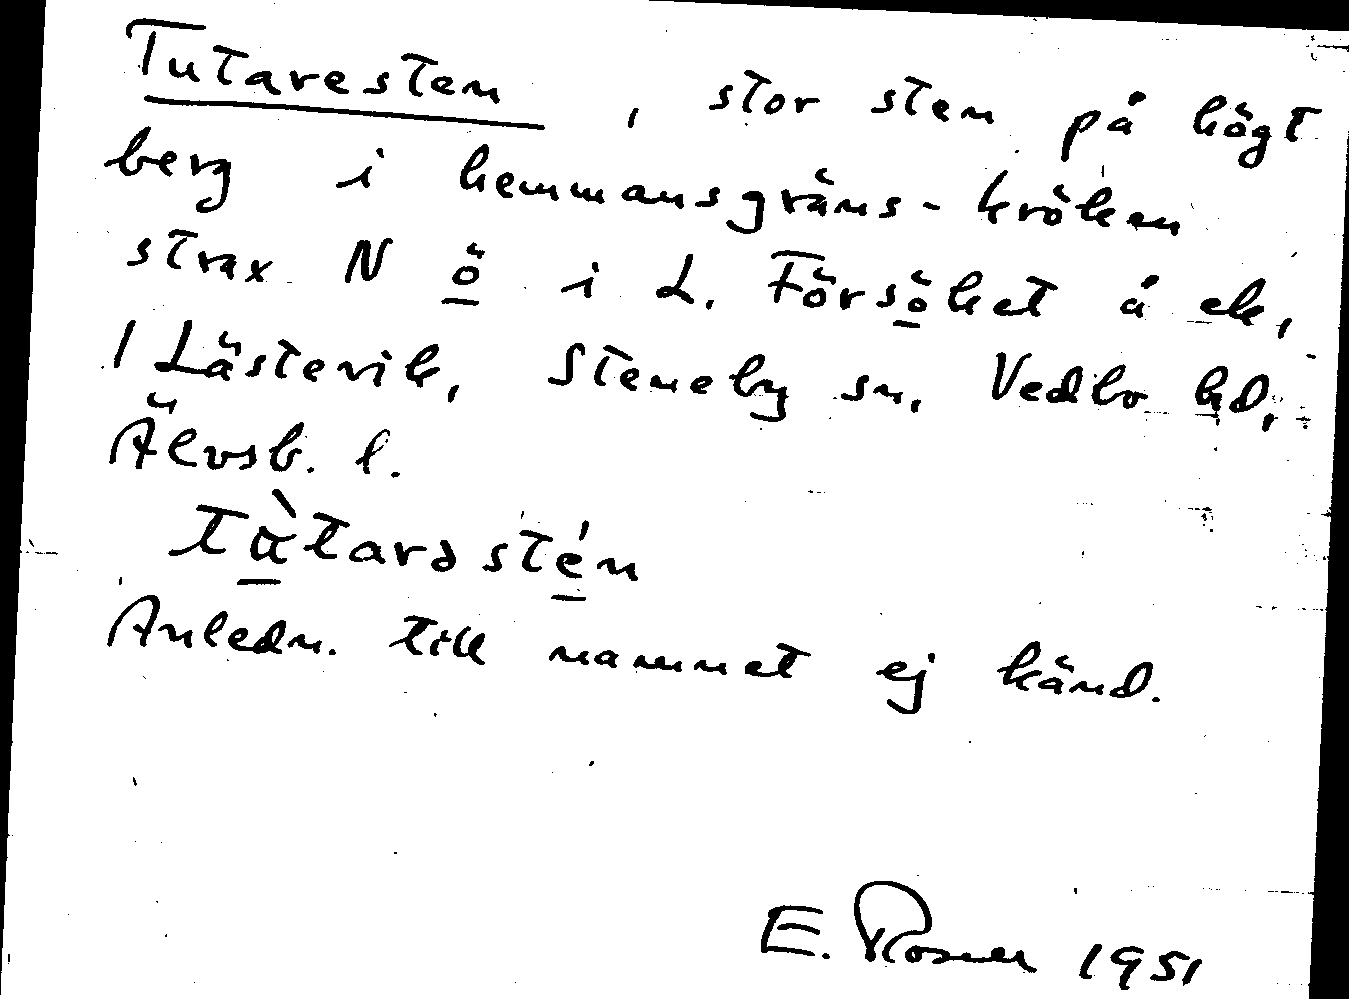 Tutaresten, stor sten på högt
berg i hemmansgräns-kröken
strax N ö i L. Försöket å ek,
1 Lästevik, Steneby sn, Vedbo hd,
Älvsb. l.
tùtarə stén
Anledn. till namnet ej känd.
E. Rosner 1951